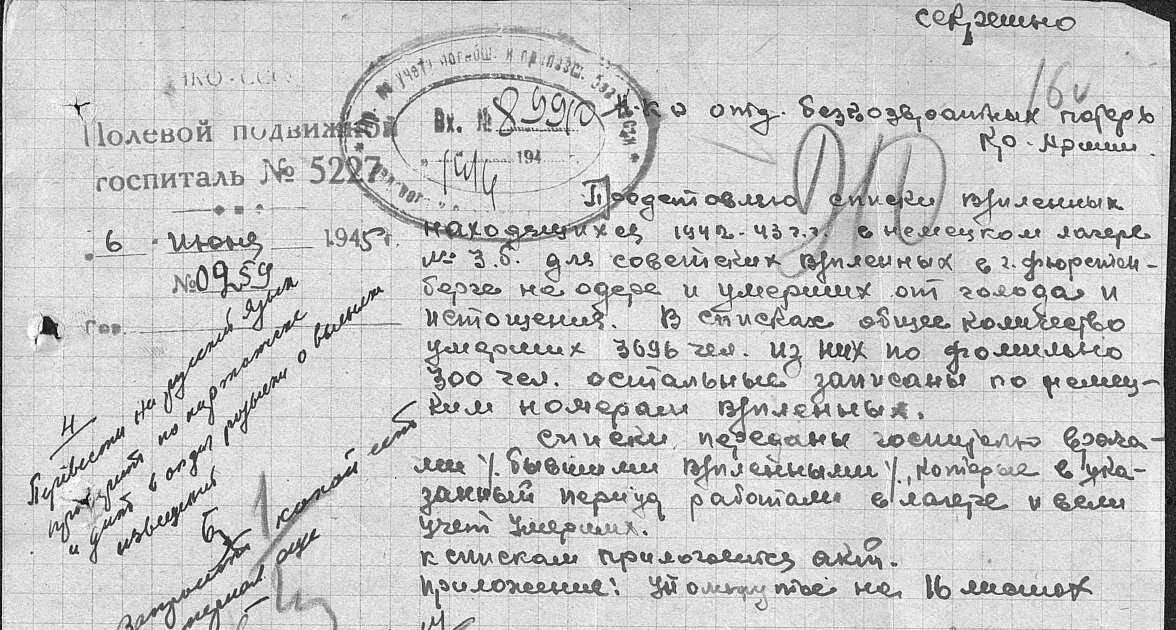 секретно
НКО-СССР
Полевой подвижной
госпиталь № 5227
6 июня 1945 г.
№ 0959
Гор.
Вх. № 899
194
Н-ку отд. безвозвратных потерь
Кр. Армии.
Представляю списки в/пленных
находящихся 1942-43 г.г. в немецком лагере
№ 3.б. для советских в/пленных в г. Фюрстен-
берге на одере и умерших от голода и
истощения. В списках общее количество
умерших 3696 чел. из них по фомильно
300 чел. остальные записаны по немец-
ким номерам в/пленных.
Списки переданы госпиталю врача-
ми /бывшими в/пленными/, которые в ука-
занный период работали в лагере и вели
учет умерших.
К спискам прилогается акт.
Приложение: Упомянутое на 16 листах
4
Перевести на русский язык
проверить по картотеке
и дать в отдел розыска о высылке
извещений
5
Запросить какой есть
материал еще